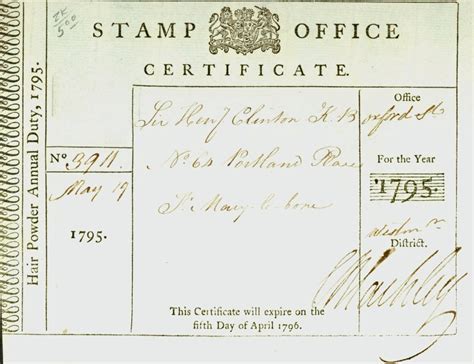 5.00
STAMP OFFICE
CERTIFICATE.
Hair Powder Annual Duty, 1795.
No. 3911.
May 19
1795.
Sir Hen.y Clinton K B
No. 64 Portland Place
St. Mary-le-bone
Office
Oxford St
For the Year
1795.
District.
This Certificate will expire on the
fifth Day of April 1796.